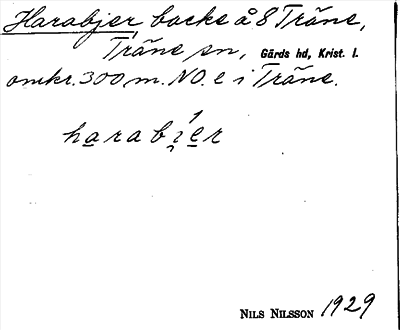 Harabjer, backe å 8 Träne,
Träne sn, Gärds hd, Krist. l.
omkr. 300 m. NO. e i Träne.
harabi̯er
NILS NILSSON 1929